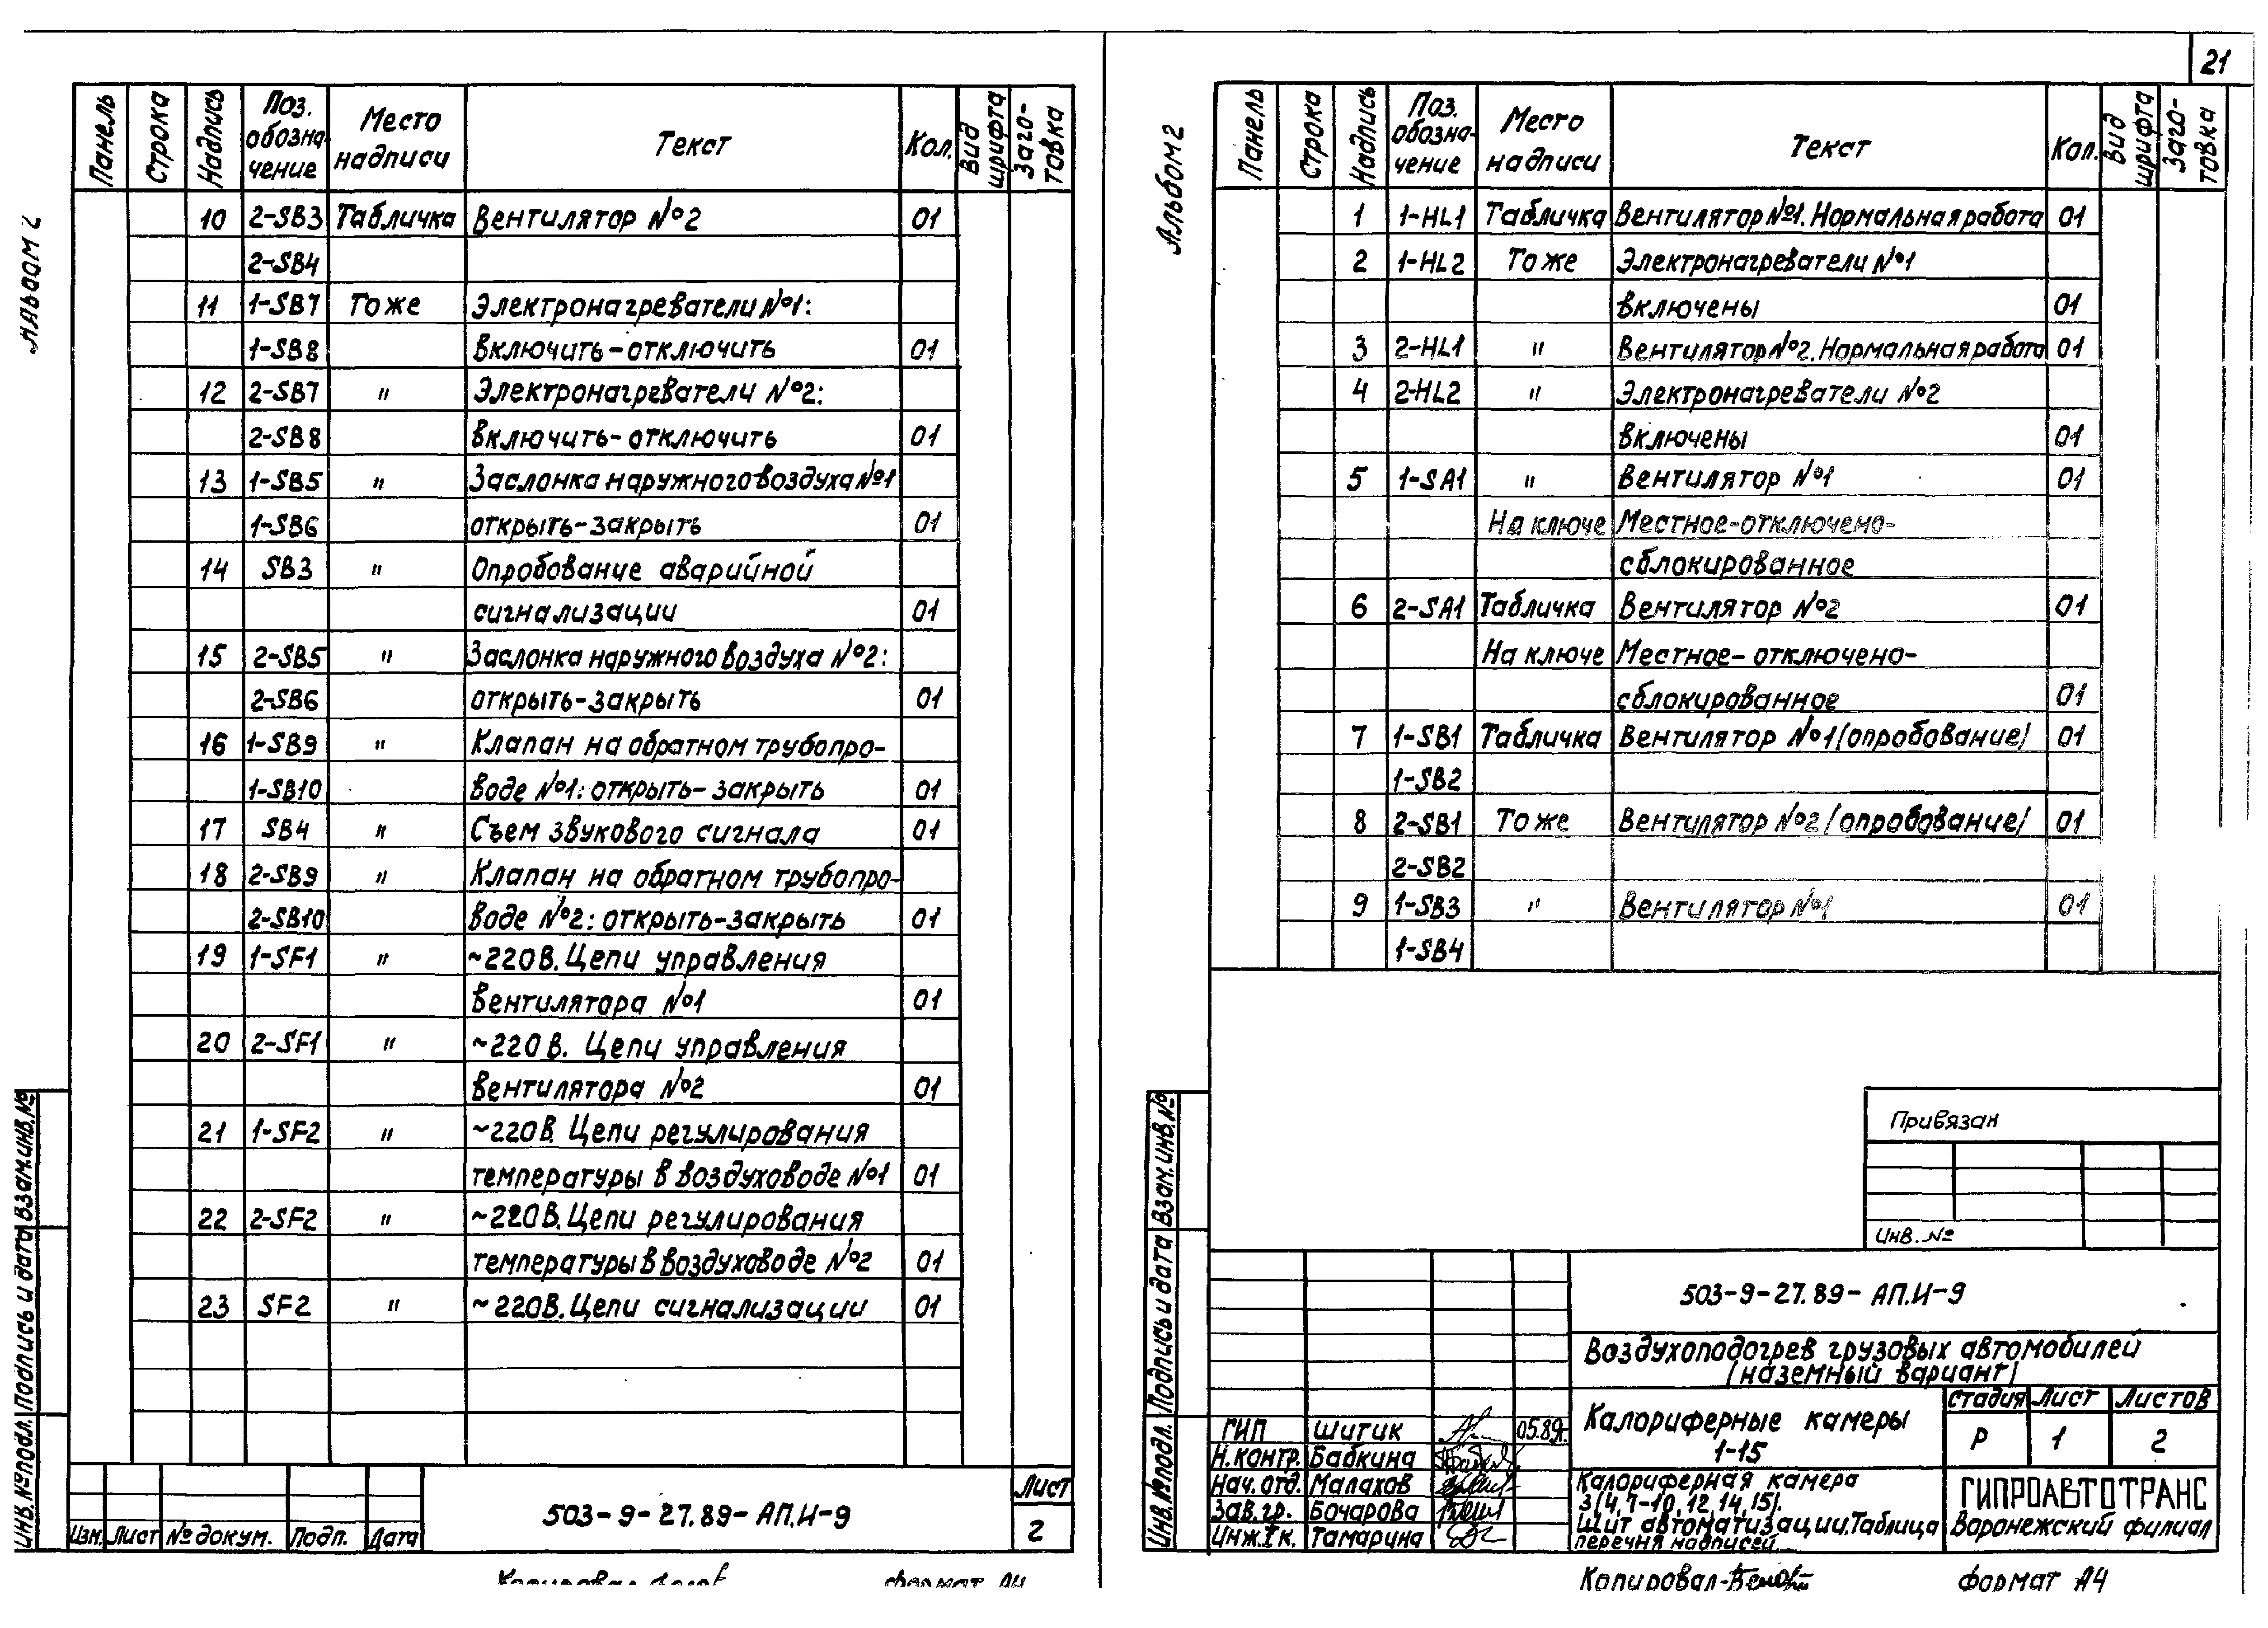 21
Альбом 2
Панель Строка Надпись Поз. обозна- чение Место надписи Текст Кол. Вид шрифта Заго- товка
10 2-SB3 Табличка Вентилятор №2 01
2-SB4
11 1-SB7 То же Электронагреватели №1:
1-SB8 включить-отключить 01
12 2-SB7 " Электронагреватели №2:
2-SB8 включить-отключить 01
13 1-SB5 " Заслонка наружного воздуха №1
1-SB6 открыть-закрыть 01
14 SB3 " Опробование аварийной
сигнализации 01
15 2-SB5 " Заслонка наружного воздуха №2:
2-SB6 открыть-закрыть 01
16 1-SB9 " Клапан на обратном трубопро-
1-SB10 воде №1: открыть-закрыть 01
17 SB4 " Съем звукового сигнала 01
18 2-SB9 " Клапан на обратном трубопро-
2-SB10 воде №2: открыть-закрыть 01
19 1-SF1 " ~220В. Цепи управления
вентилятора №1 01
20 2-SF1 " ~220В. Цепи управления
вентилятора №2 01
21 1-SF2 " ~220В. Цепи регулирования
температуры в воздуховоде №1 01
22 2-SF2 " ~220В. Цепи регулирования
температуры в воздуховоде №2 01
23 SF2 " ~220В. Цепи сигнализации 01
Инв.№подл. Подпись и дата Взам.инв.№
Изм. Лист № докум. Подп. Дата
503-9-27.89-АП.И-9
Лист
2
Копировал
Формат А4
Альбом 2
Панель Строка Надпись Поз. обозна- чение Место надписи Текст Кол. Вид шрифта Заго- товка
1 1-HL1 Табличка Вентилятор №1. Нормальная работа 01
2 1-HL2 То же Электронагреватели №1
включены 01
3 2-HL1 " Вентилятор №2. Нормальная работа 01
4 2-HL2 " Электронагреватели №2
включены 01
5 1-SA1 " Вентилятор №1 01
На ключе Местное-отключено-
сблокированное
6 2-SA1 Табличка Вентилятор №2 01
На ключе Местное-отключено-
сблокированное 01
7 1-SB1 Табличка Вентилятор №1 /опробование/ 01
1-SB2
8 2-SB1 То же Вентилятор №2 /опробование/ 01
2-SB2
9 1-SB3 " Вентилятор №1 01
1-SB4
Привязан
Инв. №
Инв.№подл. Подпись и дата Взам.инв.№
503-9-27.89-АП.И-9
Воздухоподогрев грузовых автомобилей
/наземный вариант/
ГИП Шитик 05.89г.
Н.контр. Бабкина
Нач.отд. Малахов
Зав.гр. Бочарова
Инж.Iк. Тамарина
Калориферные камеры
1-15
Стадия Лист Листов
Р 1 2
Калориферная камера
3/4,7-10,12,14,15/.
Щит автоматизации. Таблица
перечня надписей
ГИПРОАВТОТРАНС
Воронежский филиал
Копировал-
Формат А4